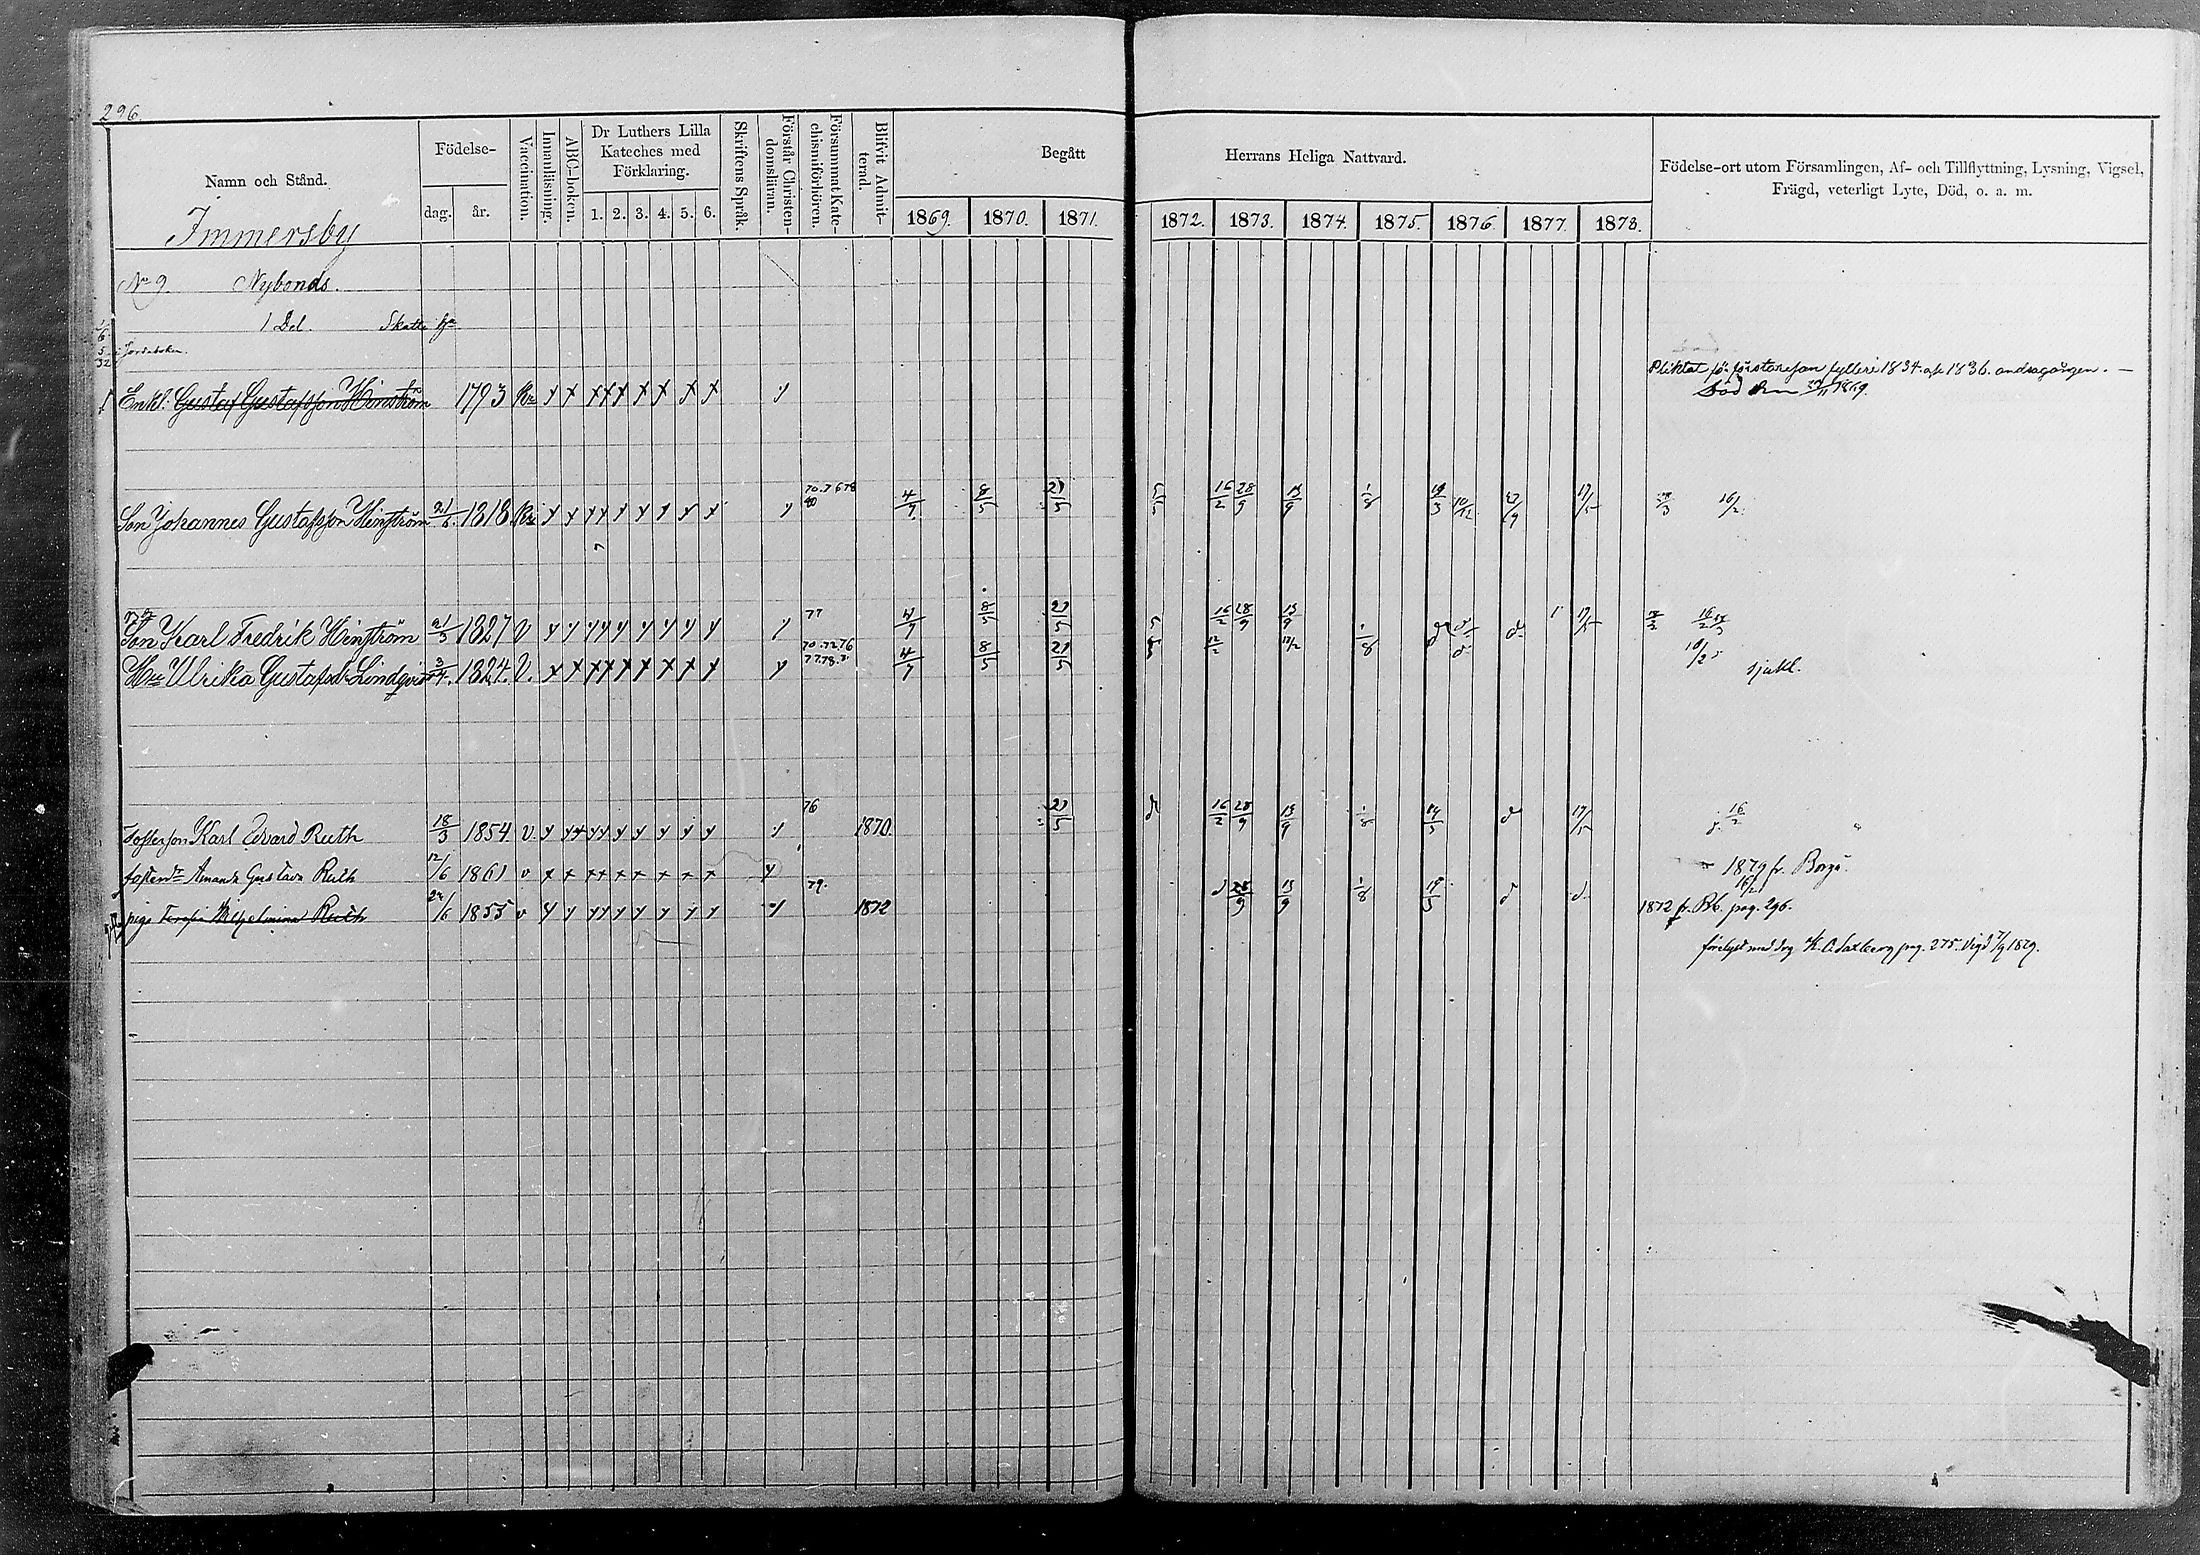 296.
Namn och Stånd.
Födelse-
dag.
år.
Vaccination.
Innanläsning.
ABC-boken.
Dr Luthers Lilla
Kateches med
Förklaring.
1. 2. 3. 4. 5. 6.
Skriftens Språk.
Förstår Christen-
domsläran.
Försummat Kate-
chismiförhören.
Blifvit Admit-
terad.
Begått
Herrans Heliga Nattvard.
1869. 1870. 1871.
1872. 1873. 1874. 1875. 1876. 1877. 1878.
Födelse-ort utom Församlingen, Af- och Tillflyttning, Lysning, Vigsel,
Frägd, veterligt Lyte, Död, o. a. m.
Immersby
No 9. Nybonds.
1 Del. Skatte
i Jordeboken.
Enkl. Gustaf Gustafsson Hinström 1793
Pliktat för första resan fylleri 1834 1836 andra gången.
Död den 1869.
Son Johannes Gustafsson Hinström 21/6 1818
4/7 8/5 21/5 16/2 28/9 13/9 1/8 17/5 16/2
Son Karl Fredrik Hinström 21/3 1827 V
77 4/7 8/5 21/5 16/2 28/9 13/9 1/8 17/5 16/2
Hu Ulrika Gustafsdr Lindqvist 3/4 1824. V.
70.72.76
77.78. 4/7 8/5 21/5 12/2
sjukl.
Fosterson Karl Edvard Ruth 18/3 1854. V.
76 1870. 21/5 16/2 28/9 13/9 1/8 17/5 16/2
fosterdr Amanda Gustava Ruth 12/6 1861 v
1879 fr. Borgå
piga Wilhelmina Ruth 24/6 1855 v
79. 1872 28/9 13/9 1/8 16/2
1872 fr. Bb. pag. 296.
förlyst med drg K. A. Saxberg pag. 275. Vigd 7/9 1879.